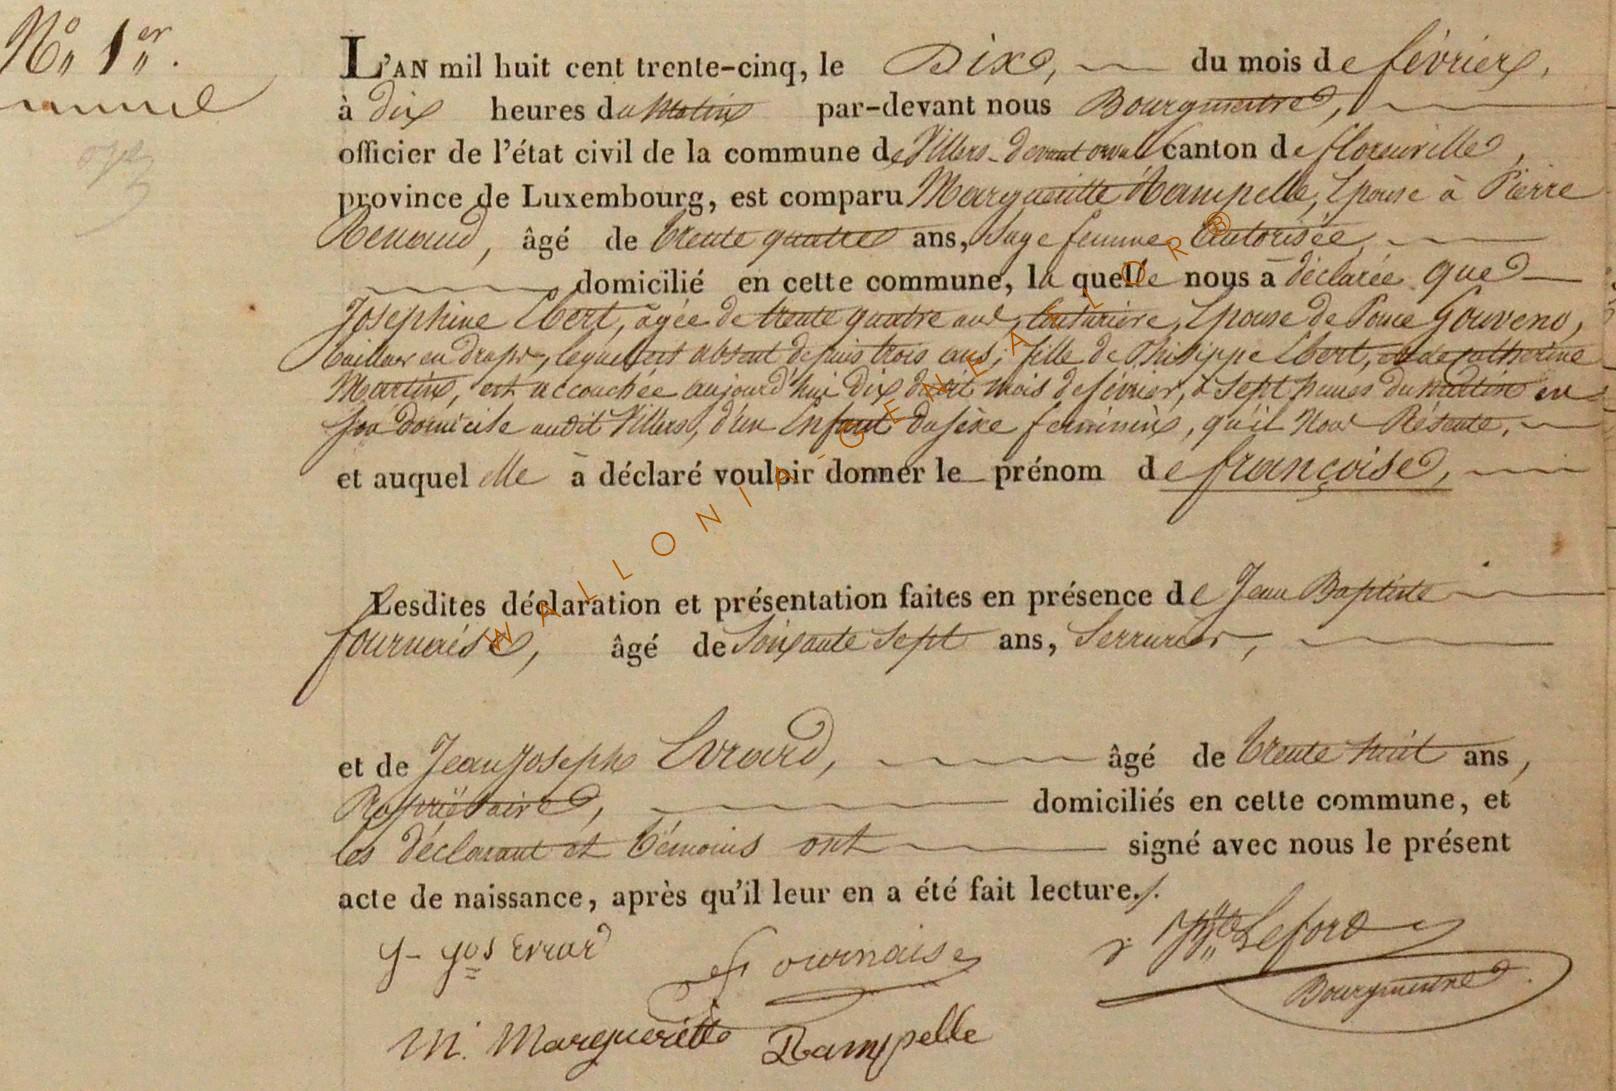 N° 1er.
L'AN mil huit cent trente-cinq, le Dix, du mois de février,
à dix heures du Matin par-devant nous Bourgmestre,
officier de l'état civil de la commune de Villers-devant orval canton de florenville,
province de Luxembourg, est comparu Margueritte Rampelle, Epouse à Pierre
Renaud, âgé de trente quatre ans, Sage femme Autorisée,
domicilié en cette commune, la quelle nous à déclarée que
Josephine Ebert, agée de trente quatre ans, Couturière, Epouse de Ponce Gouveno,
tailleur en draps, lequel est absent depuis trois ans, fille de Philippe Ebert, et de catherine
Martin, est accouchée aujourd'hui dix dudit mois de février, à sept heures du matin en
son domicile audit Villers, d'un Enfant du sèxe feminin, qu'il Nous Présente,
et auquel elle à déclaré vouloir donner le prénom de françoise,
Lesdites déclaration et présentation faites en présence de Jean Baptiste
fournaise, âgé de Soixante Sept ans, Serrurier,
et de Jean Joseph Evrard, âgé de trente huit ans,
Propriétaire, domiciliés en cette commune, et
les déclarant et témoins ont signé avec nous le présent
acte de naissance, après qu'il leur en a été fait lecture./.
J- Jos Evrard
Fournaise
J. Bte Leford
Bourgmestre
M. Margueritte Rampelle
WALLONIA-GENEALDR®